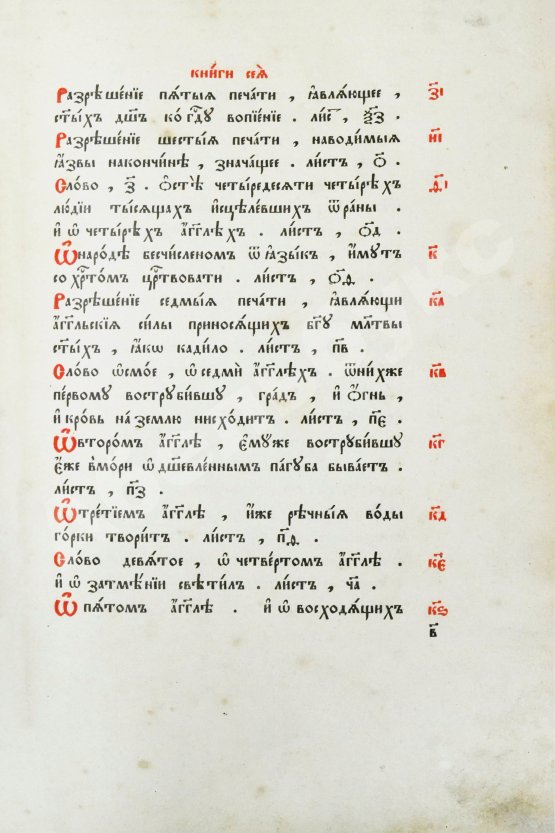 книги сеѧ̀
Разрѣше́нїе пѧ́тыѧ печа́ти , ꙗ҆влѧ́ющее , з҃і
ст҃ы́хъ дш҃ъ ко гдⷭ҇ꋋ вопїе́нїе . лиⷭ҇ , ѯ҃з .
Разрѣше́нїе шесты́ѧ печа́ти , наводи́мыѧ и҃і
ꙗ҆́звы наконч́инѣ , зна́чащее . ли́стъ , ѻ҃ .
Сло́во , з҃ . ѻ҆стѣ̀ четы́редесѧти четы́рѣхъ ѳ҃і
лю́дїи ты́сѧщахъ и҆сцѣлѣ́вшихъ ѿ ра́ны .
и҆ ѡ҆ четы́рѣхъ а҆́гг҃лѣхъ . ли́стъ , ѻ҃д .
Ѡ҆наро́дѣ безчи́сленомъ ѿ ꙗ҆зы́къ , и҆́мꋋтъ к҃
со хрⷭ҇то́мъ црⷭ҇твовати . ли́стъ , ѻ҃ѳ .
Разрѣше́нїе седмы́ѧ печа́ти , ꙗ҆влѧ́ющи к҃а
а҆́гг҃льскїѧ си́лы приносѧ́щихъ бг҃ꋋ мл҃твы
ст҃ы́хъ , ꙗ҆́кѡ кади́ло . ли́стъ , п҃в .
Сло́во ѻ҆смо́е , ѡ҆ седмѝ а҆́гг҃лѣхъ . ѿ ни́хже к҃в
пе́рвомꋋ вострꋋби́вшꋋ , гра́дъ , и҆ ѻ҆́гнь ,
и҆ кро́вь на зе́млю нисхо́дит . ли́стъ , п҃є .
Ѡ҆второ́мъ а҆́гг҃лѣ , є҆мꋋ́же вострꋋби́вшꋋ к҃г
є҆́же в мо́ри ѡ҆дш҃евле́ннымъ па́гꋋба быва́етъ .
ли́стъ , п҃з .
Ѡ҆тре́тїемъ а҆́гг҃лѣ , и҆́же рѣ́чныѧ во́ды к҃д
го́рки твори́тъ . ли́стъ , п҃ѳ .
Сло́во девѧ́тое , ѡ҆ четве́ртомъ а҆́гг҃лѣ . к҃є
и҆ ѡ҆ затмѣ́нїи свѣти́лъ . ли́стъ , ч҃а .
Ѡ҆ пѧ́томъ а҆́гг҃лѣ . и҆ ѡ҆ восходѧ́щихъ к҃ѕ
в҃